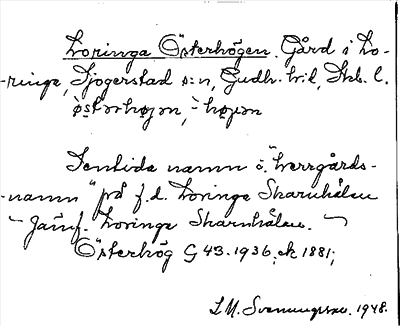 Loringa Österhögen. Gård i Lo-
-ringa, Sjogerstad s:n, Gudh. h:d, Skb. l.
østərhøjən, - højən
Sentida namn o. "herrgårds-
-namn" på f.d. Loringa Skarnhålan
~ Jämf. Loringa Skarnhålan. ~
Österhög G 43. 1936, ek 1881;
I. M. Svenungsson. 1948.